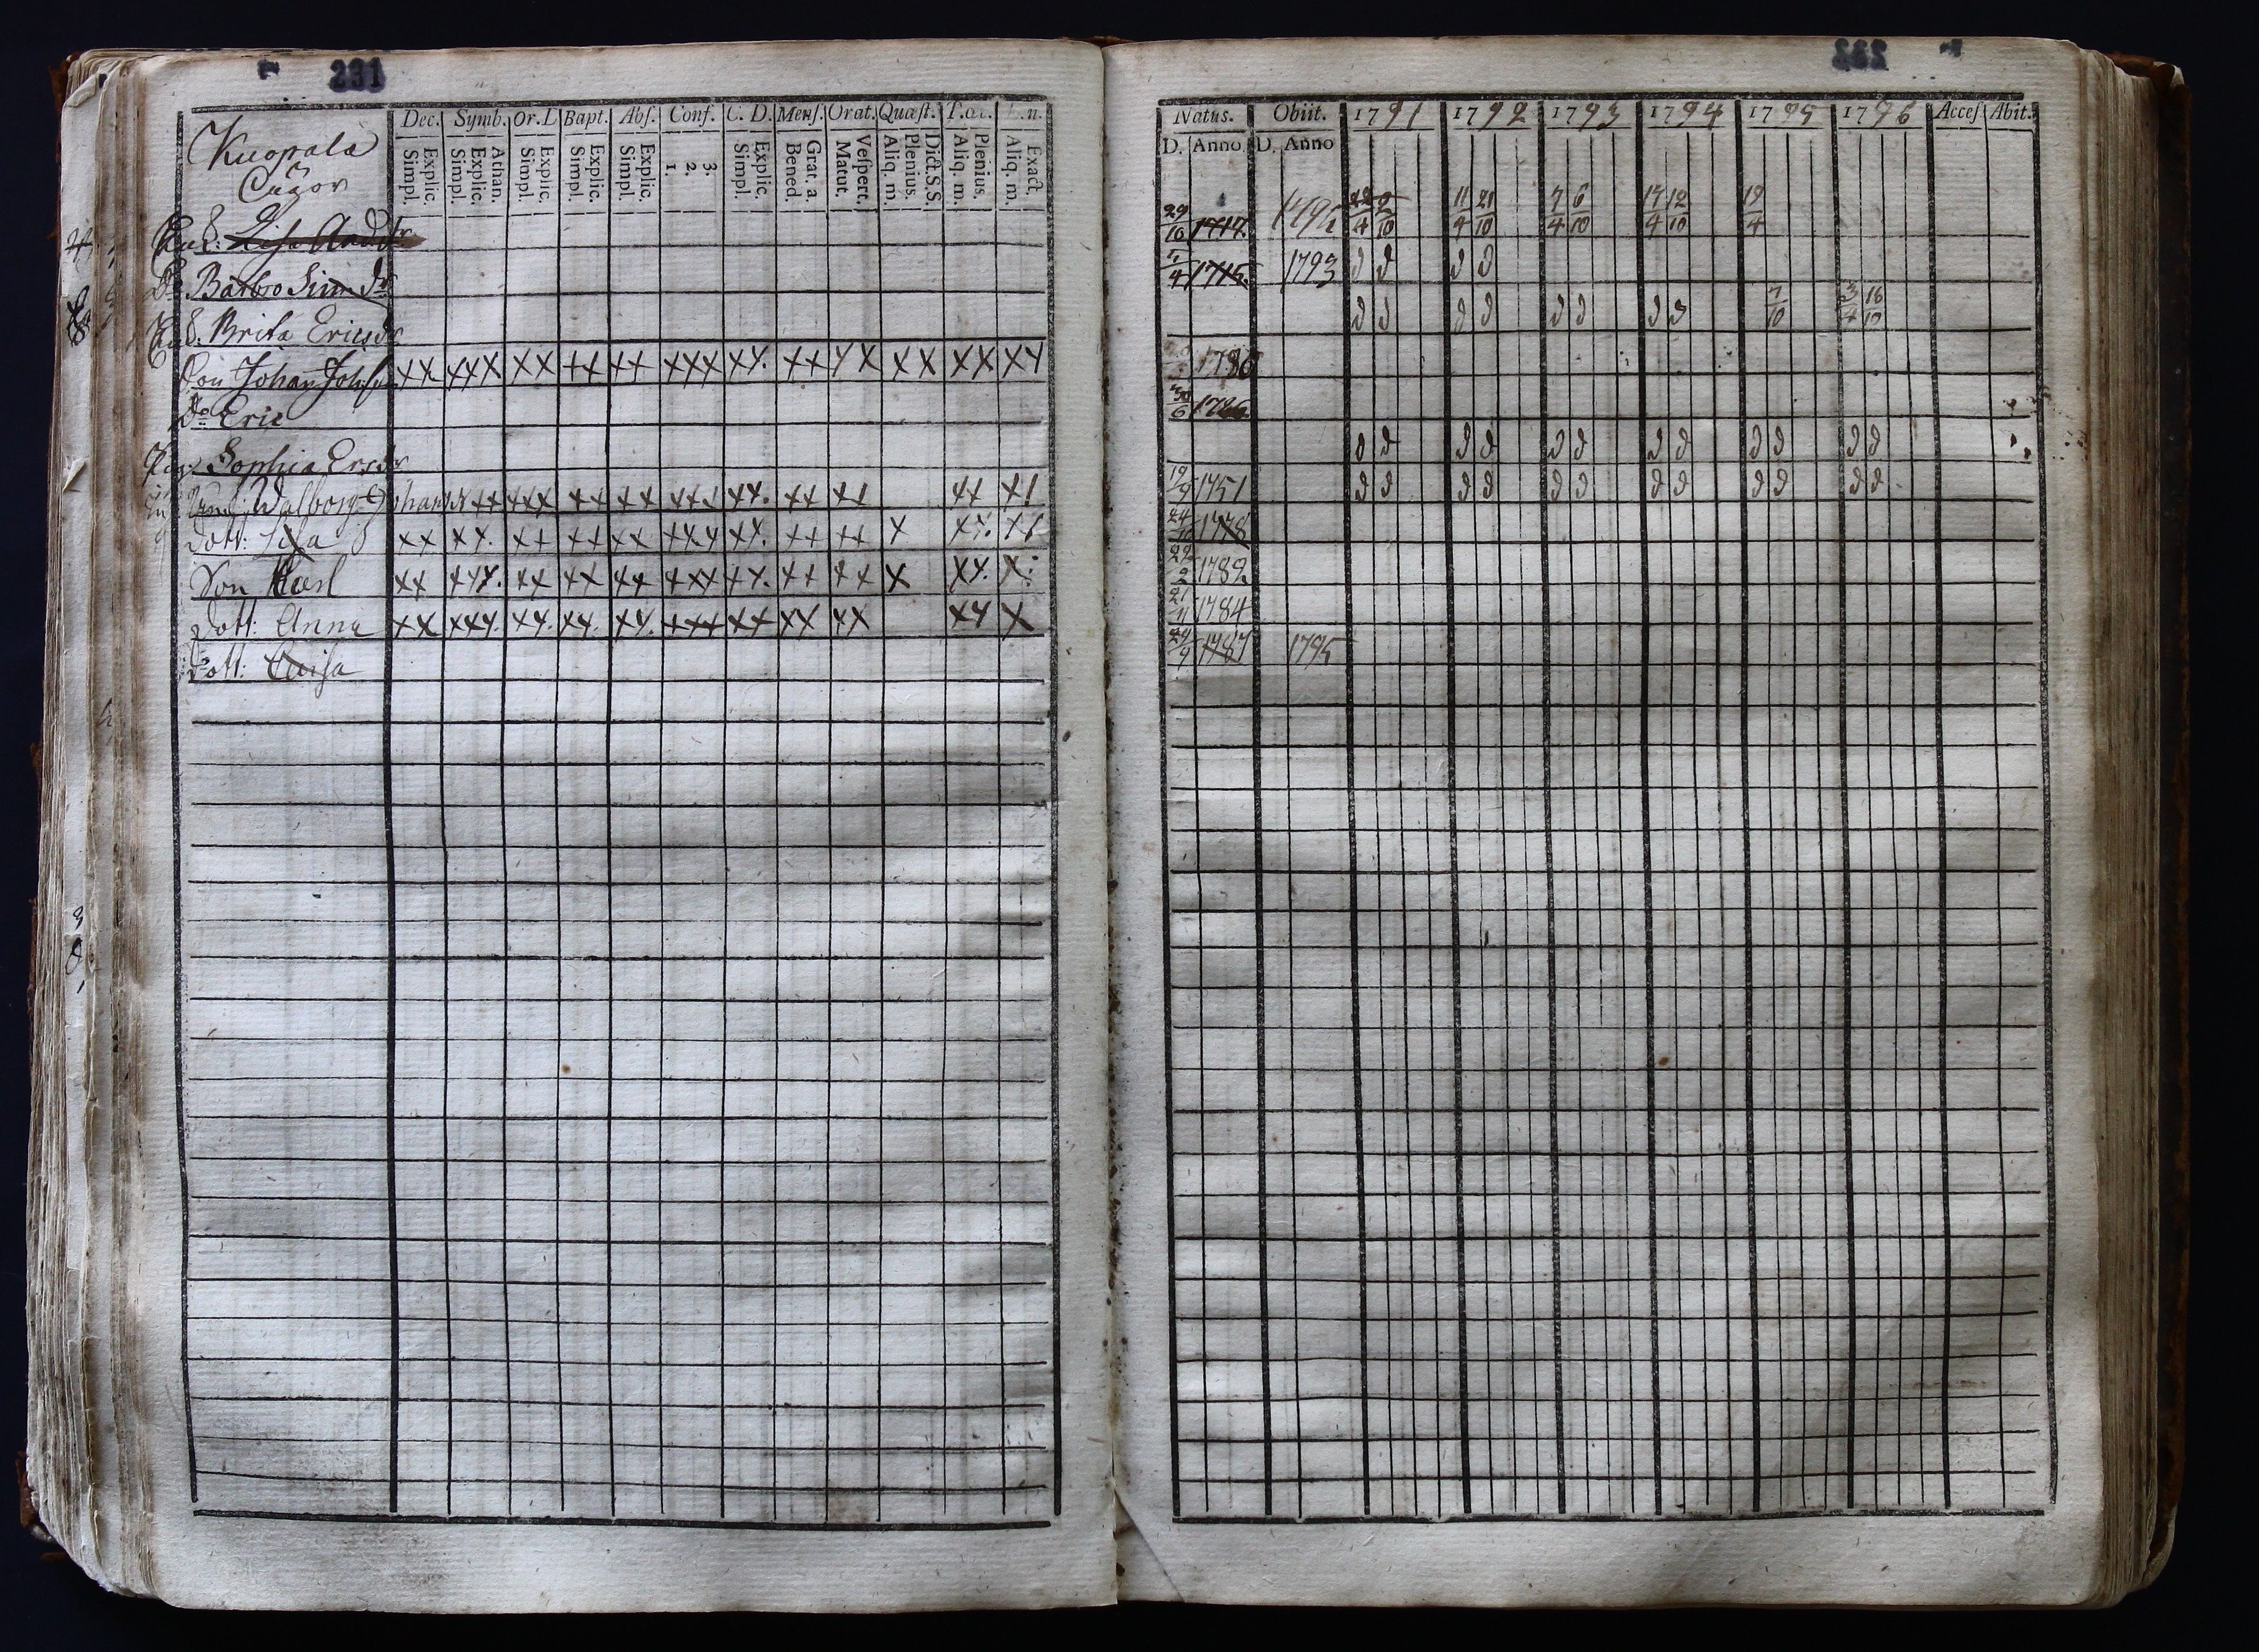 231
Dec. Symb. Or. D Bapt. Abs. Conf. C. D. Mens. Orat. Quæst.
Explic. Simpl. Athan. Explic. Simpl. Explic. Simpl. Explic. Simpl. Explic. Simpl. 3. 2. 1. Explic. Simpl. Grat. a. Bened. Vespert. Matut. Dict. S.S. Plenius. Aliq. m. Plenius. Aliq. m. Exact. Aliq. m.
Kuopala
Lisa And dr
Do Barbro Sim dr
Brita Ericsdr
Son Johan Johsson xx xxx xx xx xx xxx xx. xx xx xx xx xx
Do Eric
Sophia Ersdr
Walborg
dott: Lisa xx xx. xx xx xx xxx xx. xx xx x xx. xx
Son Carl xx xxx. xx xx xx xxx xx. xx xx x xx. x:
dott: Anna xx xxx. xx. xx. xx. xxx xx xx xx xx x
dott: Caisa
232
Natus. Obiit. 1791 1792 1793 1794 1795 1796 Access Abit.
D. Anno D. Anno
29/10 1717. 1795 22/4 2/10 11/4 21/10 7/4 6/10 14/4 12/10 19/4
1715. 1793 d d d d
d d d d d d d d 7/10 3/4 16/10
1786
30/6 1726.
d d d d d d d d d d d d
19/9 1751 d d d d d d d d d d d d
24/10 1778
22/2 1782
21/11 1784
24/9 1787 1795